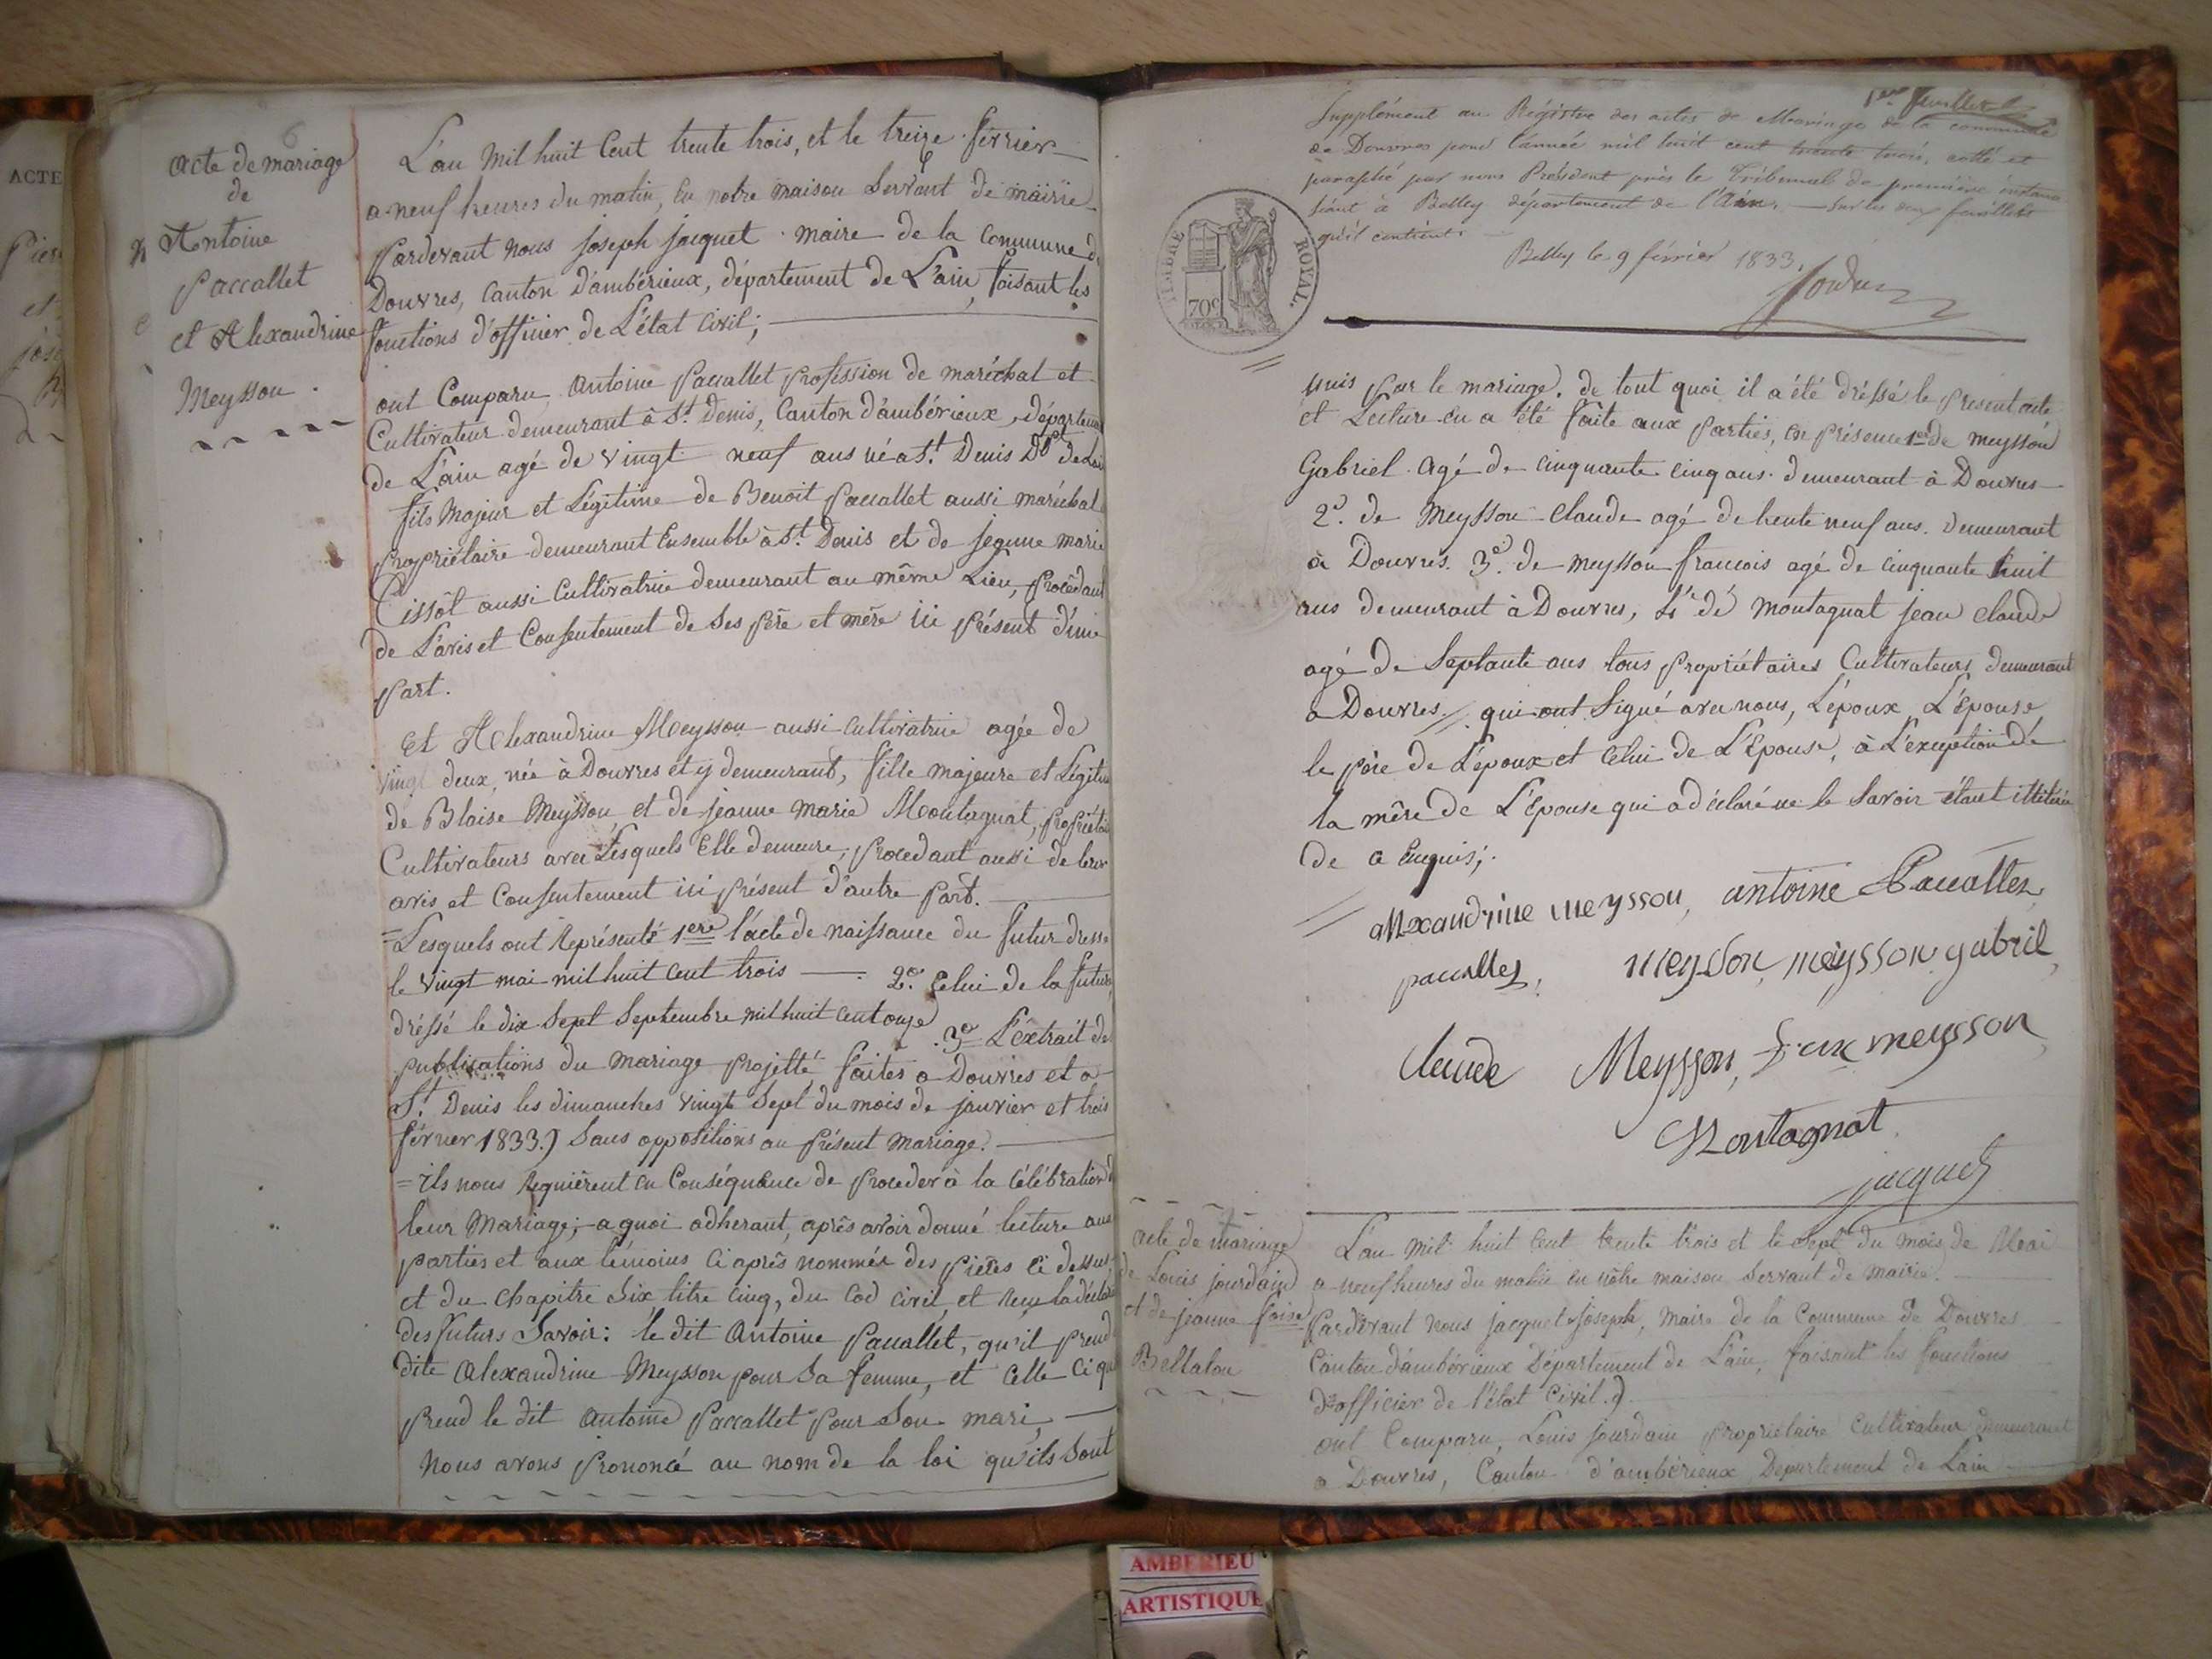 ACTE
6
acte de mariage
de
Antoine
Paccallet
et Alexandrine
Meysson.
L'an Mil huit Cent trente trois, et le treize février
a neuf heures du matin, en notre maison Servant de mairie
Pardevant nous joseph jacquet maire de la Commune de
Douvres, Canton d'ambérieux, département de L'ain, faisant les
fonctions d'officier de L'état civil;
ont Comparu Antoine Paccallet profession de maréchal et
Cultivateur demeurant à St. Denis, Canton d'ambérieux, départem
de L'ain agé de vingt neuf ans né a St. Denis Dpt de Lain
fils Majeur et Légitime de Benoit Paccallet aussi maréchal
Propriétaire demeurant Ensemble à St. Denis et de jeanne marie
Cissôt aussi Cultivatrice demeurant au même Lieu, Procédant
de L'avis et Consentement de Ses père et mère ici présent d'une
Part.
Et Alexandrine Meysson aussi cultivatrice agée de
vingt deux, née à Douvres et y demeurant, fille majeure et Légitim
de Blaise Meysson et de jeanne marie Montagnat, propriétai
Cultivateurs avec Lesquels Elle demeure, procedant aussi de leur
avis et Consentement ici présent d'autre Part.
= Lesquels ont Représenté 1ere l'acte de naissance du futur dressé
le vingt mai mil huit cent trois — 2e. Celui de la future
dréssé le dix Sept Septembre mil huit cent onze
. 3e L'éxtrait de
publications du mariage projetté faites a Douvres et a
St. Denis les dimanches vingt Sept du mois de janvier et trois
février 1833.) Sans oppositions au présent Mariage.
= ils nous requièrent en Conséquence de proceder à la célébration d
leur Mariage; a quoi adherant, après avoir donné lecture aux
parties et aux témoins ci après nommés des pièces ci dessus
et du Chapitre Six titre cinq, du Cod civil, et reçu la déclar
des futurs Savoir: le dit Antoine Paccallet, qu'il prend
dite Alexandrine Meysson pour Sa femme, et Celle Ci qu
prend le dit Antoine Paccallet Pour Son mari,
nous avons Prononcé au nom de la loi qu'ils Sont
1er feuillet
Supplément au Régistre des actes de Mariage de la commune
de Douvres pour l'année mil huit cent trente trois, cotté et
paraphé par nous Président près le Tribunal de première instance
séant à Belley département de l'Ain. — Sur les deux feuillets
qu'il contient.
Belley le 9 février 1833.
TIMBRE ROYAL.
70c
unis par le mariage. de tout quoi il a été dréssé le present acte
et Lecture en a été faite aux parties, en présence 1er de meysson
Gabriel agé de cinquante cinq ans demeurant à Douvres
2e. de Meysson Claude agé de trente neuf ans. demeurant
à Douvres. 3e. de meysson francois agé de cinquante huit
ans demeurant à Douvres, 4e de montagnat jean claude
agé de Septante ans tous propriétaires Cultivateurs, demeurant
a Douvres. // qui ont Signé avec nous, L'époux L'épouse
le père de L'époux et Celui de L'Epouse, à L'exception de
la mère de L'Epouse qui a déclaré ne le Savoir étant illitérée
de ce Enquis;.
alexandrine meysson, antoine Paccallet,
paccallet, meysson, meysson gabril,
claude Meysson, meysson,
Montagnat
jacquet
acte de mariage
de Louis jourdain
et de jeanne
Bellaton
L'an mil huit Cent trente trois et le Sept du mois de Mai
a neuf heures du matin en nôtre maison Servant de Mairie.
Pardevant nous jacquet joseph, Maire de la Commune de Douvres
Canton d'ambérieux Département de L'ain, faisant les fonctions
d'officier de l'état Civil.)
ont Comparu, Louis jourdain propriétaire Cultivateur demeurant
a Douvres, Canton d'ambérieux Departement de Lain
AMBERIEU
ARTISTIQUE